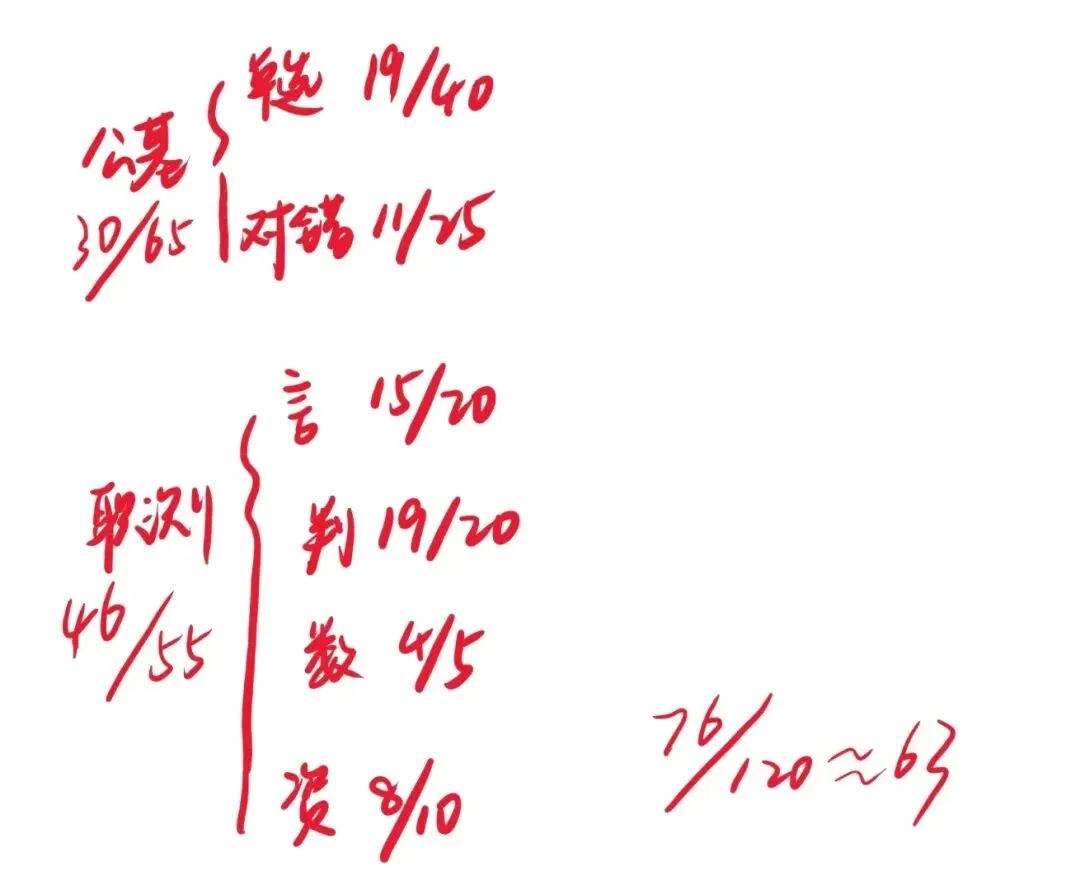 单选 19/40
公基
30/65
对错 11/25
言 15/20
职测
46/55
判 19/20
数 4/5
资 8/10
76/120≈63